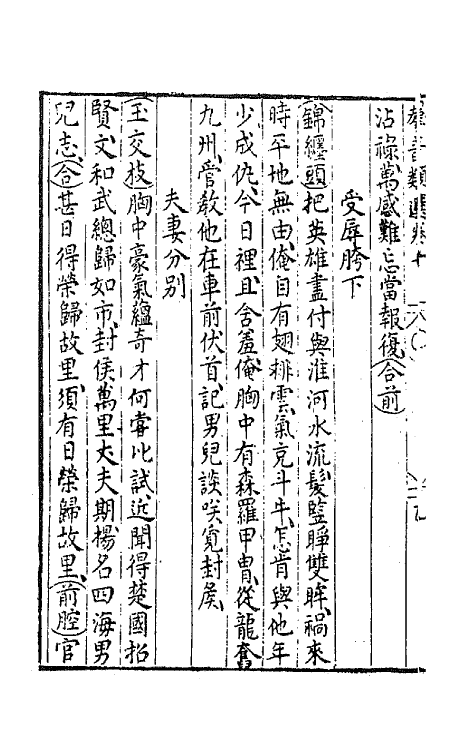 羣音類選卷十
沾祿萬感難忘當報復合前
受辱胯下
錦纏頭把英雄盡付與淮河水流髮豎睜雙眸禍來
時平地無由俺自有翅排雲氣克斗牛怎肯與他年
少成仇今日裡且含羞俺胸中有森羅甲冑從龍奮
九州管教他在車前伏首記男兒談笑覓封侯
夫妻分別
玉交枝胸中豪氣蘊奇才何嘗比試近聞得楚國招
賢文和武總歸如市封侯萬里大夫期揚名四海男
兒志合甚日得榮歸故里須有日榮歸故里前腔官